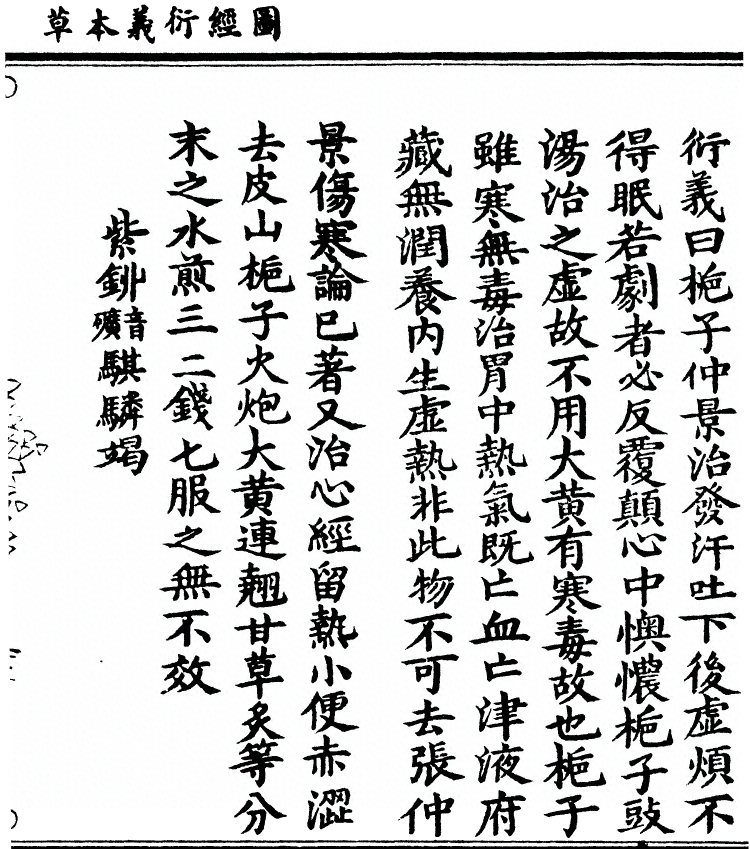 圖經衍義本草
衍義曰梔子仲景治發汗吐下後虛煩不
得眠若劇者必反覆顛心中懊憹梔子豉
湯治之虛故不用大黃有寒毒故也梔子
雖寒無毒治胃中熱氣既亡血亡津液府
藏無潤養內生虛熱非此物不可去張仲
景傷寒論已著又治心經留熱小便赤澀
去皮山梔子火炮大黃連翹甘草炙等分
末之水煎三二錢七服之無不效
紫鉚音礦騏驎竭